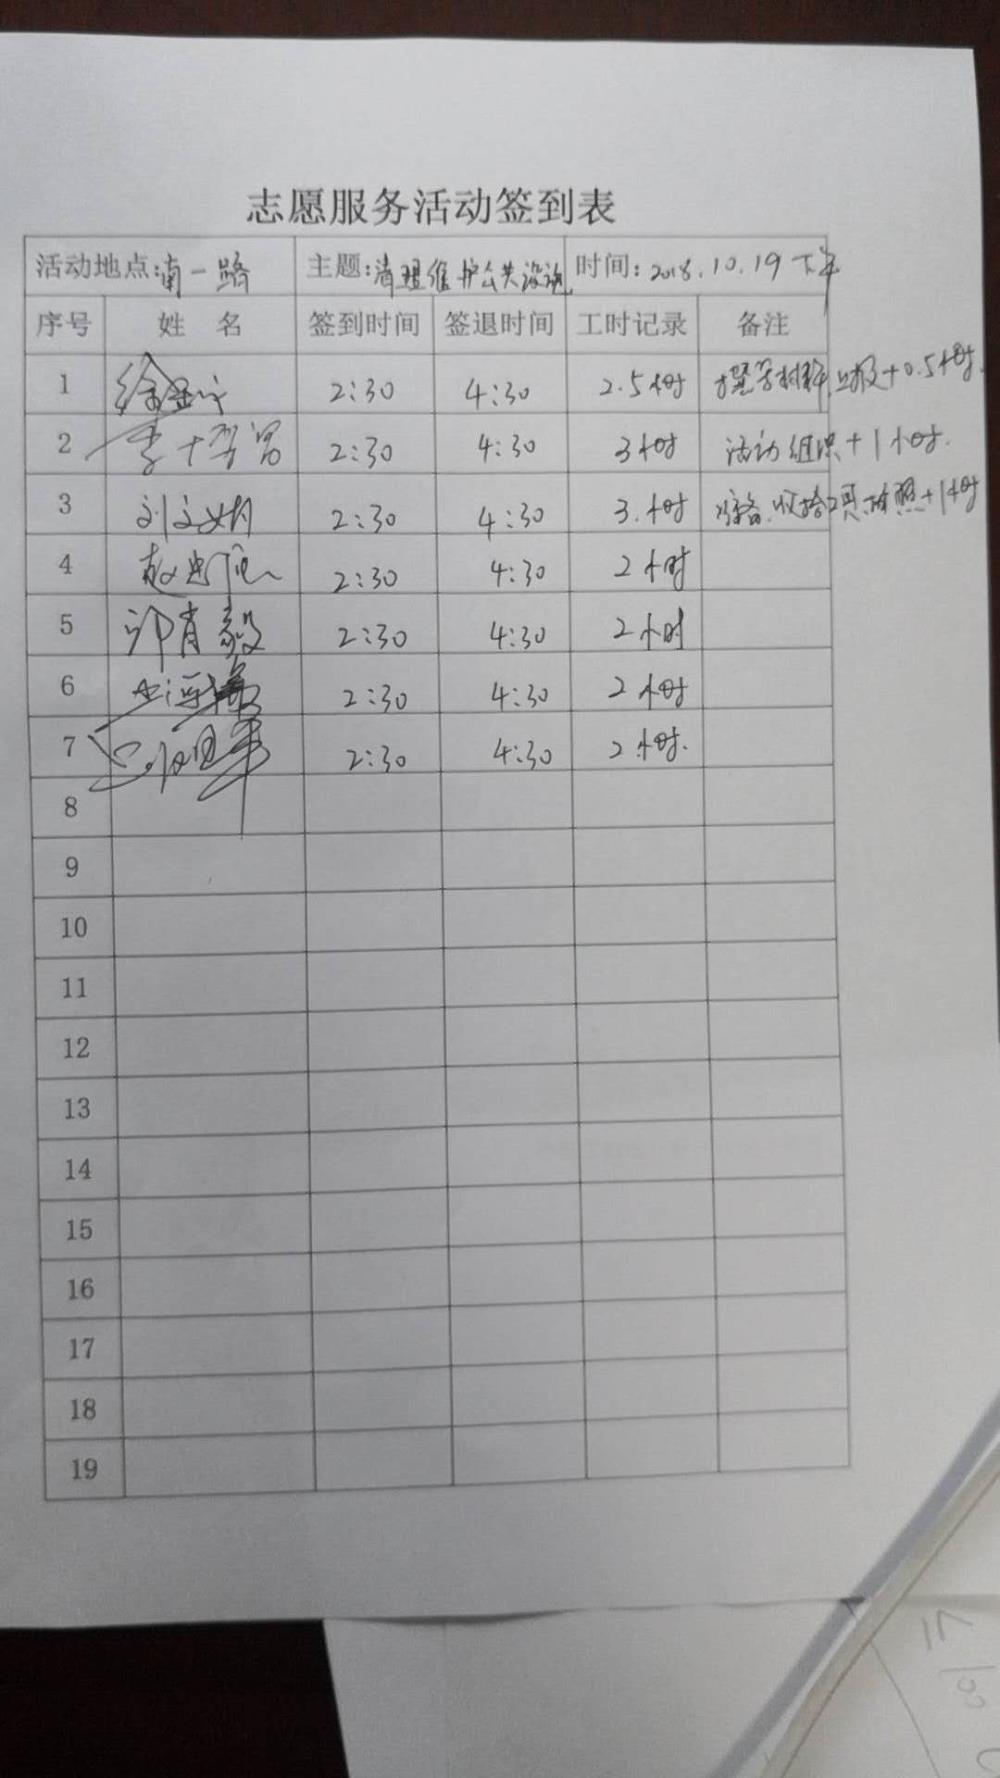 志愿服务活动签到表
活动地点:南一路 主题:清理维护公共设施 时间:2018.10.19下午
序号 姓 名 签到时间 签退时间 工时记录 备注
1 2:30 4:30 2.5小时 撰写材料、上报+0.5小时.
2 2:30 4:30 3小时 活动组织+1小时.
3 刘文娟 2:30 4:30 3.小时 准备、收拾工具、拍照+1小时
4 2:30 4:30 2小时
5 许肖毅 2:30 4:30 2小时
6 2:30 4:30 2小时
7 2:30 4:30 2小时.
8
9
10
11
12
13
14
15
16
17
18
19